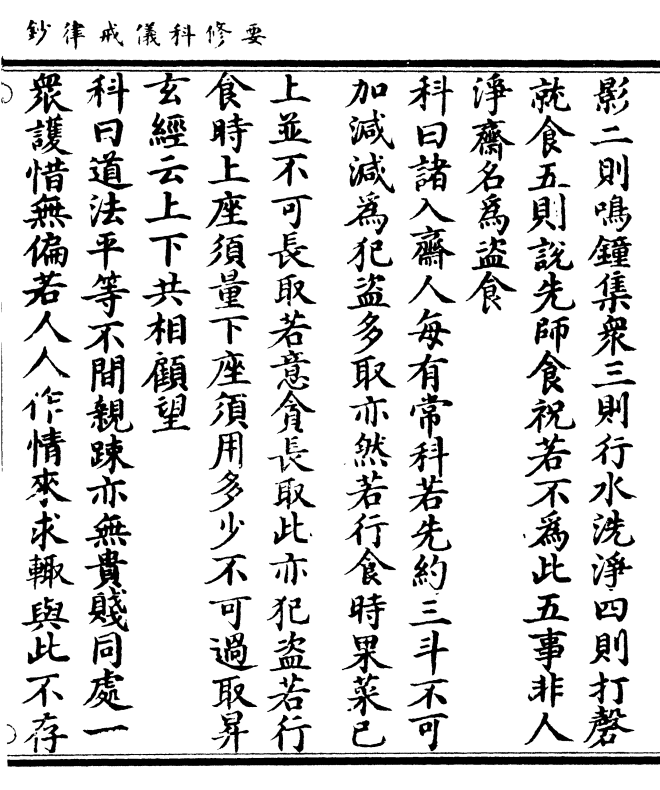 要修科儀戒律鈔
影二則鳴鐘集衆三則行水洗淨四則打磬
就食五則說先師食祝若不爲此五事非人
淨齋名爲盜食
科曰諸入齋人每有常科若先約三斗不可
加減減爲犯盜多取亦然若行食時果菜已
上並不可長取若意貪長取此亦犯盜若行
食時上座須量下座須用多少不可過取昇
玄經云上下共相顧望
科曰道法平等不間親踈亦無貴賤同處一
衆護惜無偏若人人作情來求輙與此不存